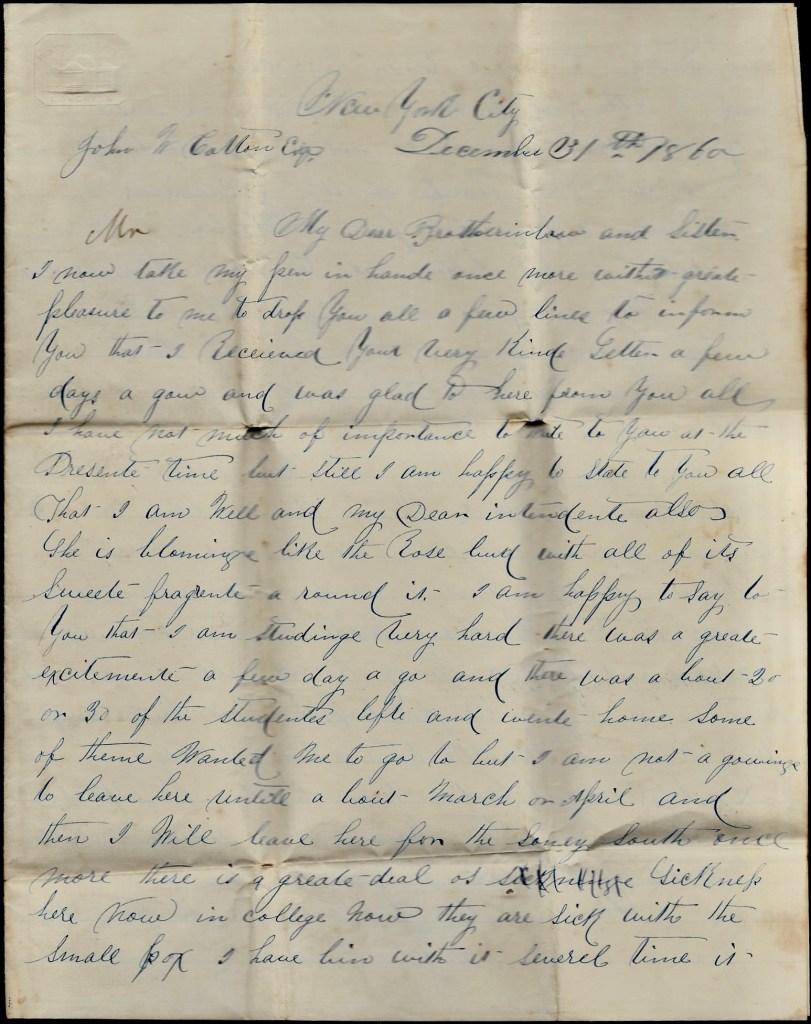 New York City
John W Cotton Esq. December 31th 1860
Mr My Dear Brotherinlaw and Sister
I now take my pen in hande once more with greate
pleasure to me to drop You all a few lines to inform
You that I Receieved Your Very Kinde Letter a few
days a gow and was glad to here from You all
I have not much of importance to write to You at the
Presente time but still I am happy to state to You all
That I am Well and my Dear intendente also
She is blominge like the Rose bud with all of its
Sweete fragrente a round it. I am happy to say to
You that I am studinge Very hard there was a greate
excitemente a few day a go and there was a bout 20
or 30 of the studentes lefte and wente home some
of theme Wanted me to go to but I am not a gowinge
to leave here untill a bout March or April and
then I Will leave here for the Soney South once
more there is a greate deal of Sickness
here Now in college Now they are sick with the
small pox I have bin with it severel time it